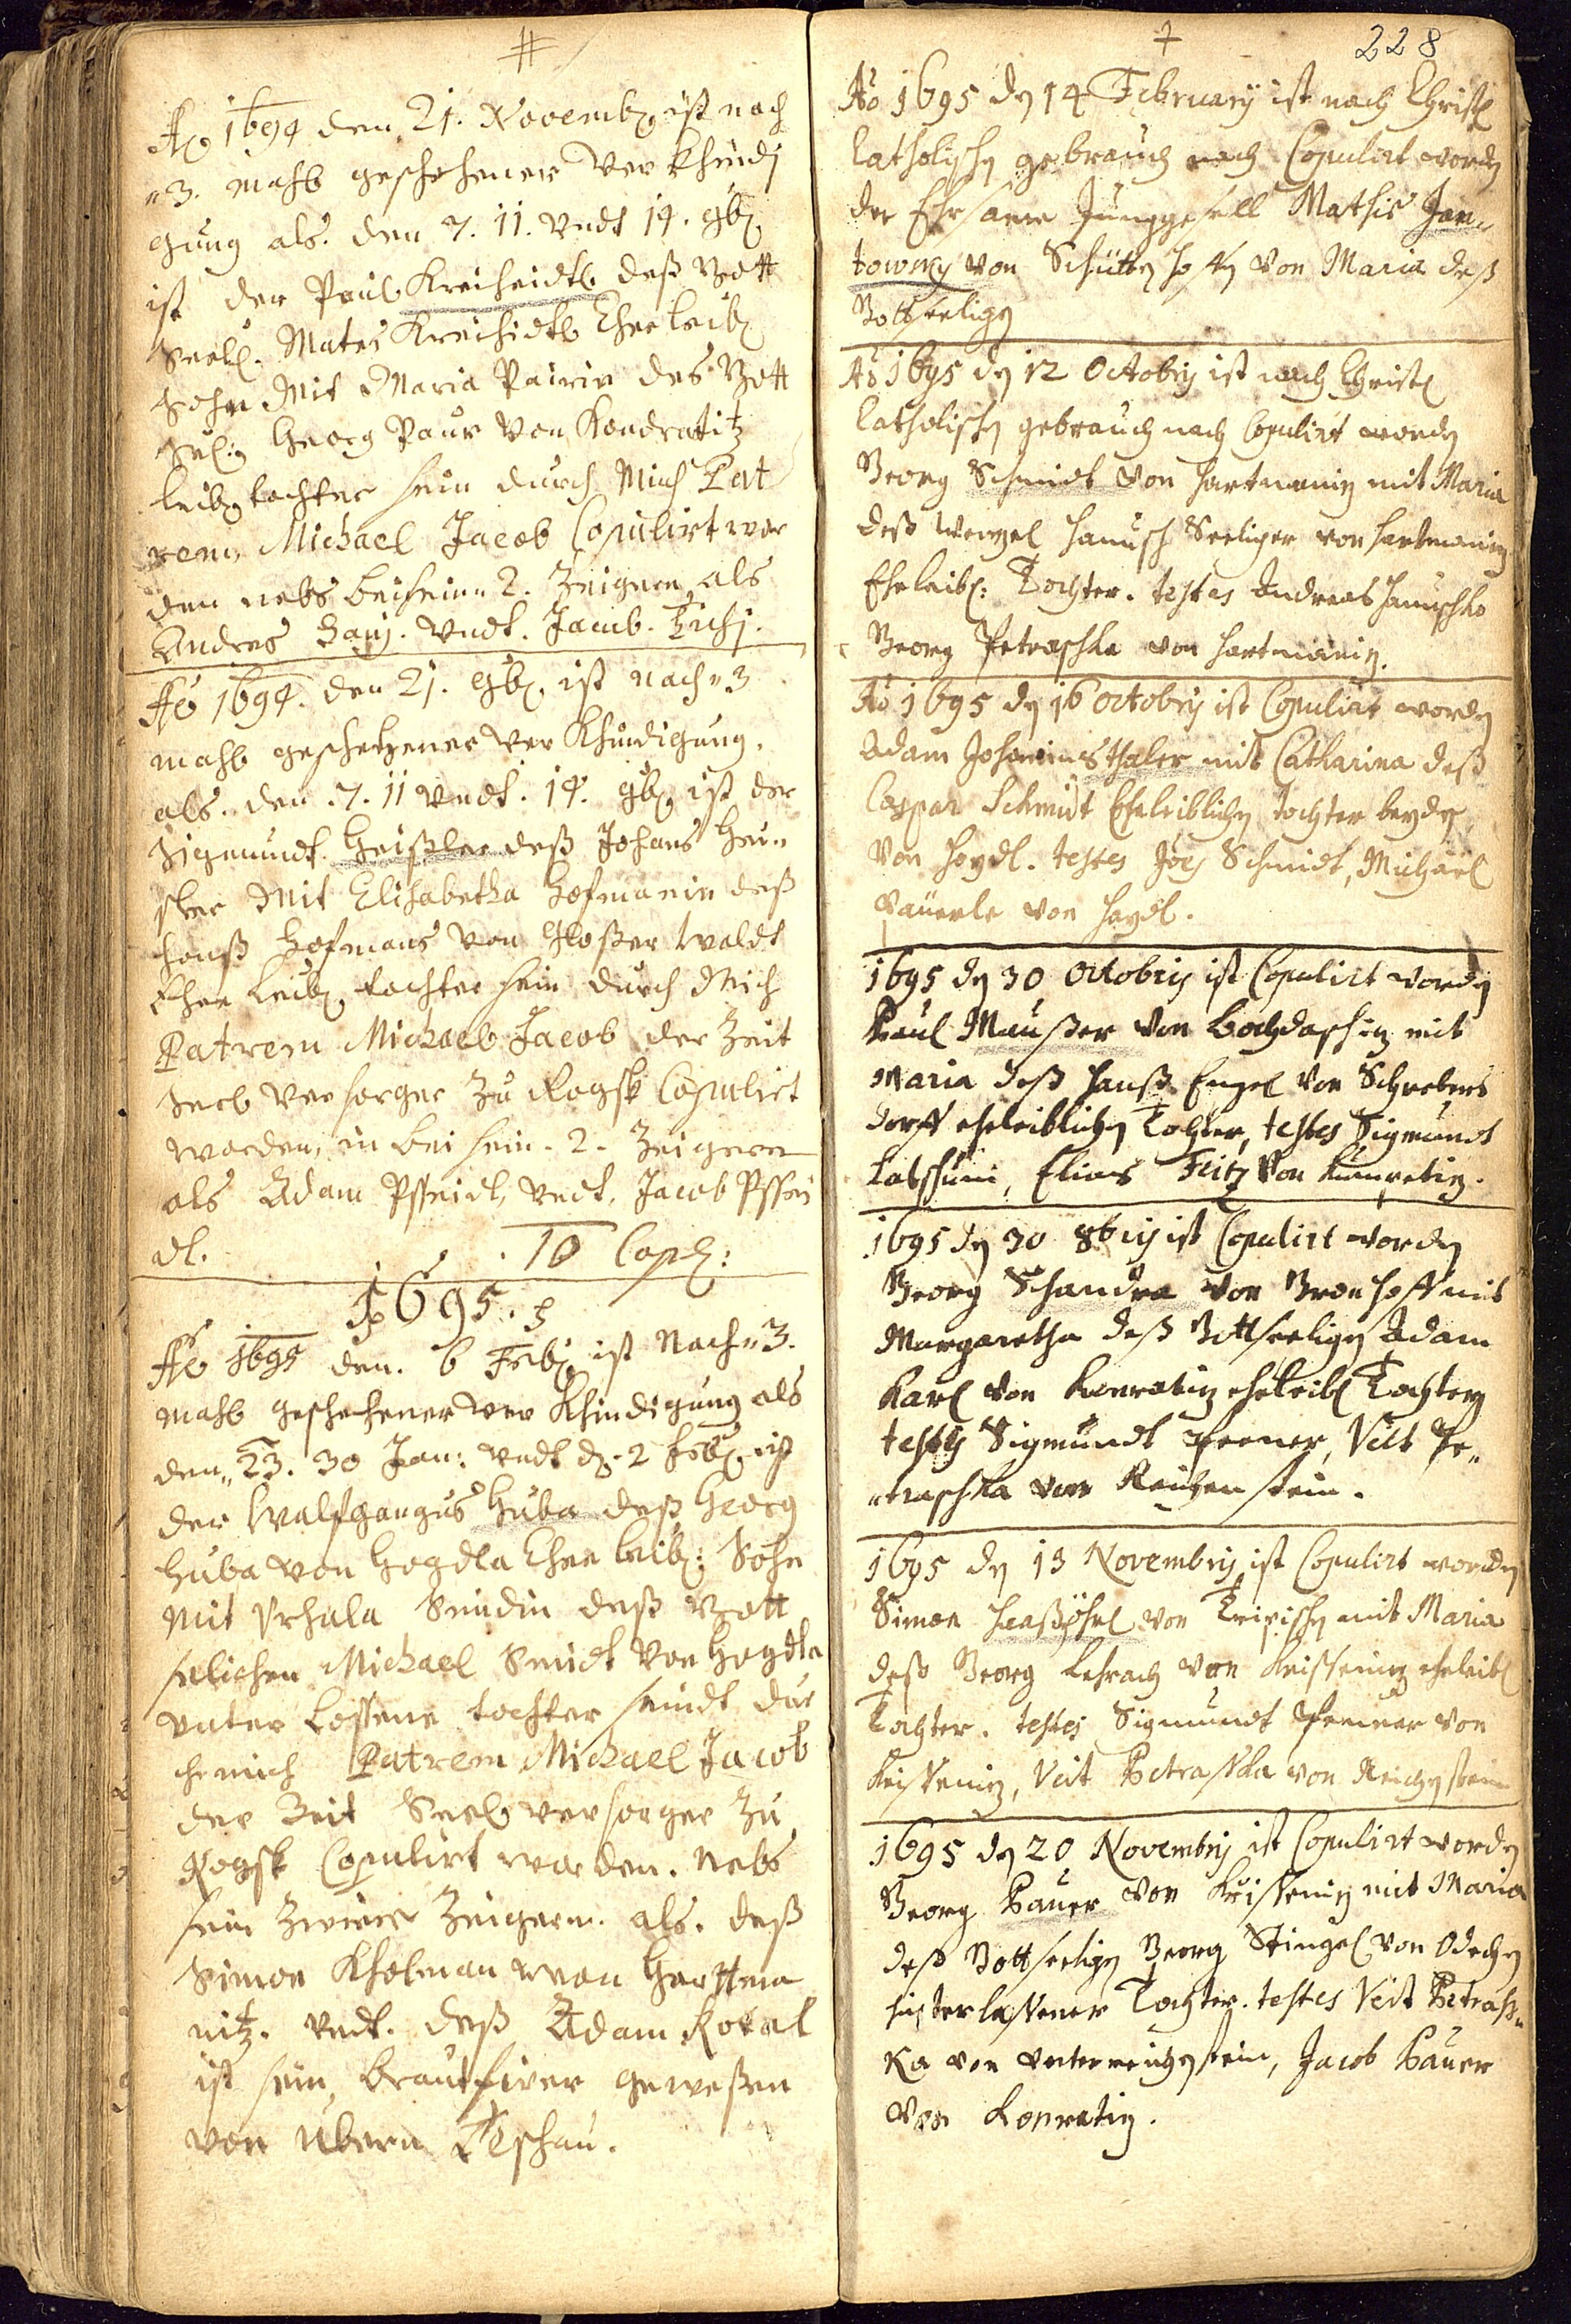 Ao 1694 den 21. Novemb. ist nach
3. mahl geschehener Ver khindi
gung als. den 7. 11. Vndt 14. 9b.
ist der Paul Kreiseidl deß Gott
Seel. Mates Kreisidl Ehe leib.
Sohn Mit Maria Pairin des Gott
Sel: Georg Paur von Kondratitz
leib. tochter sein durch Mich Pat
rem Michael Jacob Copulirt wor
den nebs beisein 2. Zeigern als
Andres Vndt. Jacob.
Ao 1694. den 21. 9b. ist nach 3
mahl geschehener Ver khindigung.
als. den .7. 11 Vndt. 14. 9b. ist der
Sigmundt Geißler deß Johans Gei
sler Mit Elisabetha Hofmanin deß
Hanß Hofmans von Gloßer Waldt
Ehe Leib. tochter sein durch Mich
Patrem Michael Jacob der Zeit
Seel Versorger Zu Rogsk Copulirt
worden, in bei sein .2. Zeigern
als Adam Vndt. Jacob
dl. . 10 Cop:
1695.
Ao 1695 den. 6 Feb. ist Nach 3.
mahl geschehener Ver khindigung als
den 23. 30 Jan: Vndt d. 2 Feb. ist
der Walfgangus Huba deß Georg
Huba von Hogdla Ehe leib: Sohn
mit Vrsula Smidin deß Gott
selichen Michael Smidt von Hogdla
Vnter Lossene tochter seindt dur
ch mich Patrem Michael Jacob
der Zeit Seel versorger Zu
Rogsk Copulirt worden. Nebs
sein Zweier Zeigern. als. deß
Simon Kholman von Harttma
nitz. Vndt. deß Adam Kotal
ist sein brautfirer geweßen
von Ubern Teschau.
228
Ao 1695 den 14 February ist nach Christl
Catholischen gebrauch nach Copulirt worden
der Ehrsame Junggesell Mathis Jan
towsky von Schüttenhoffen von Maria deß
Gottseeligen
Ao 1695 den 12 Octobris ist nach Christl
Catholischen gebrauch nach Copulirt worden
Georg Schmidt von Hartmanitz mit Maria
deß Wenzel Hanusch Seeliger von Hartmanitz
Eheleibl: Tochter. testes Andreas Hanuschko
Georg Petraschka von Hartmanitz.
Ao 1695 den 16 Octobris ist Copulirt worden
Adam Johannesthaler mit Catharina deß
Caspar Schmidt Eheleiblichen tochter beyde
von Haydl. testes Joes Schmidt, Michael
Päuerle von Haydl.
1695 den 30 Octobris ist Copulirt worden
Paul Maußer von mit
Maria deß Hanß Engel von Schrebers
dorff eheleiblichen Tochter, testes Sigmundt
Elias Fritz von Kumpatitz.
1695 den 30 8bris ist Copulirt worden
Georg Schandra von mit
Margaretha deß Gottseeligen Adam
Karl von Konratitz eheleibl Tochter
testes Sigmundt Penner, Veit Pe
traschka von Reichenstein.
1695 den 13 Novembris ist Copulirt worden
Simon von mit Maria
deß Georg von Kristenitz eheleibl
Tochter. testes Sigmundt Penner von
Kristenitz, Veit Petraska von Reichenstein
1695 den 20 Novembris ist Copulirt worden
Georg Bauer von Kristenitz mit Maria
deß Gottseeligen Georg Stingel von
hinterlassener Tochter. testes Veit Petrash
ka von Unterreichenstein, Jacob Bauer
von Konratitz.